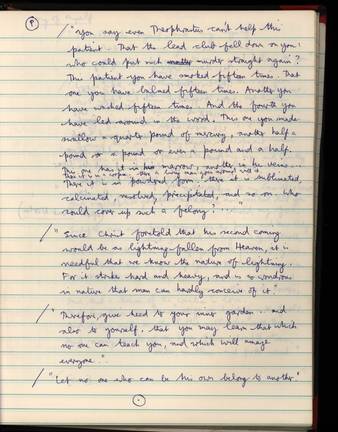 P
/ "You say even Theophrastus can't help this
patient. That the lead club fell down on you!
who could put such murder straight again?
This patient you have smoked fifteen times. That
one you have salved fifteen times. Another you
have washed fifteen times. And the fourth you
have led around in the wood. This one you made
swallow a quarter pound of mercury, another half a
pound or a pound or even a pound and a half.
This one has it in his marrow, another in his veins
There it is in powdered form, there it is sublimated,
calcinated, resolved, precipitated, and so on. Who
could cover up such a felony? ..."
/ "Since Christ foretold that his second coming
would be as lightning fallen from Heaven, it is
needful that we know the nature of lightning.
For it strikes hard and heavy, and is so wondrous
in nature that man can hardly conceive of it."
/ "Therefore, give heed to your inner garden .. and
also to yourself, that you may learn that which
no one can teach you, and which will amaze
everyone."
/ "Let no one who can be his own belong to another."